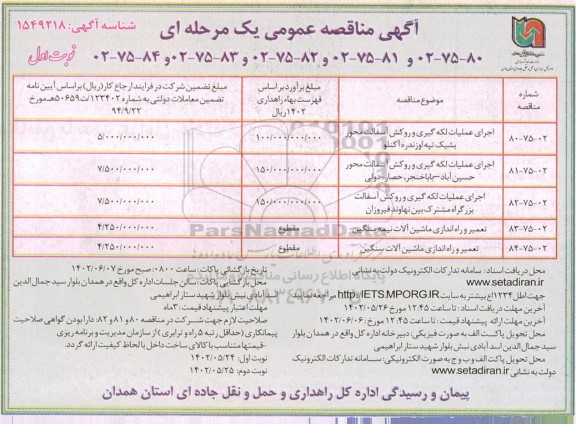 آگهی مناقصه عمومی یک مرحله ای
شناسه آگهی: ۱۵۴۹۲۱۸
نوبت اول
۸۰-۷۵-۰۲ و ۸۱-۷۵-۰۲ و ۸۲-۷۵-۰۲ و ۸۳-۷۵-۰۲ و ۸۴-۷۵-۰۲
شماره مناقصه
موضوع مناقصه
مبلغ برآورد بر اساس فهرست بهاء راهداری ۱۴۰۲ ریال
مبلغ تضمین شرکت در فرایند ارجاع کار (ریال) بر اساس آیین نامه تضمین معاملات دولتی به شماره ۱۲۳۴۰۲/ت۵۰۶۵۹هـ مورخ ۹۴/۹/۲۲
۸۰-۷۵-۰۲
اجرای عملیات لکه گیری و روکش آسفالت محور بشیک تپه اوزندره آکنلو
۱۰۰/۰۰۰/۰۰۰/۰۰۰
۵/۰۰۰/۰۰۰/۰۰۰
۸۱-۷۵-۰۲
اجرای عملیات لکه گیری و روکش آسفالت محور حسین آباد – باباخنجر، حصار – دولی
۱۵۰/۰۰۰/۰۰۰/۰۰۰
۷/۵۰۰/۰۰۰/۰۰۰
۸۲-۷۵-۰۲
اجرای عملیات لکه گیری و روکش آسفالت بزرگراه مشترک بین نهاوند فیروزان
۱۵۰/۰۰۰/۰۰۰/۰۰۰
۷/۵۰۰/۰۰۰/۰۰۰
۸۳-۷۵-۰۲
تعمیر و راه اندازی ماشین آلات نیمه سنگین
مقطوع
۴/۲۵۰/۰۰۰/۰۰۰
۸۴-۷۵-۰۲
تعمیر و راه اندازی ماشین آلات سنگین
مقطوع
۴/۲۵۰/۰۰۰/۰۰۰
ParsNamadData
پایگاه اطلاع رسانی
محل دریافت اسناد: سامانه تدارکات الکترونیک دولت به نشانی
www.setadiran.ir
جهت اطلاع بیشتر به سایت http://IETS.MPORG.IR مراجعه نمایید
آخرین مهلت دریافت اسناد: تا ساعت ۱۲:۴۵ مورخ ۱۴۰۲/۰۵/۲۶
آخرین مهلت ارائه پیشنهاد قیمت: تا ساعت ۱۲:۴۵ مورخ: ۱۴۰۲/۰۶/۰۶
محل تحویل پاکت الف به صورت فیزیکی: دبیرخانه اداره کل واقع در همدان بلوار سید جمال الدین اسدآبادی نبش بلوار شهید ستار ابراهیمی
محل تحویل پاکت الف و ب و ج به صورت الکترونیکی: سامانه تدارکات الکترونیک دولت به نشانی www.setadiran.ir
تاریخ بازگشائی پاکات: ساعت ۰۸:۰۰ صبح مورخ ۱۴۰۲/۰۶/۰۷
محل بازگشایی پاکات: سالن جلسات اداره کل واقع در همدان بلوار سید جمال الدین اسدآبادی نبش بلوار شهید ستار ابراهیمی
مهلت اعتبار پیشنهاد قیمت: ۳ ماه
صلاحیت لازم جهت شرکت در مناقصه ۸۰ و ۸۱ و ۸۲: دارا بودن گواهی صلاحیت پیمانکاری (حداقل رتبه ۵ راه و ترابری) از سازمان مدیریت و برنامه ریزی
-قیمتها متناسب با کالای ساخت داخل با لحاظ کیفیت ارائه گردد.
نوبت اول: ۱۴۰۲/۰۵/۲۴
نوبت دوم: ۱۴۰۲/۰۵/۲۵
پیمان و رسیدگی اداره کل راهداری و حمل و نقل جاده ای استان همدان